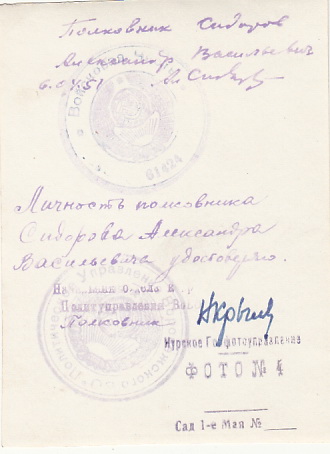 Полковник Сидоров
Александр Васильевич
Войсковая
61424
Личность полковника
Сидорова Александра
Васильевича удостоверяю.
Начальник отдела
Политуправления
Полковник
Курское Гор.фотоуправление
ФОТО № 4
Сад 1-е Мая №